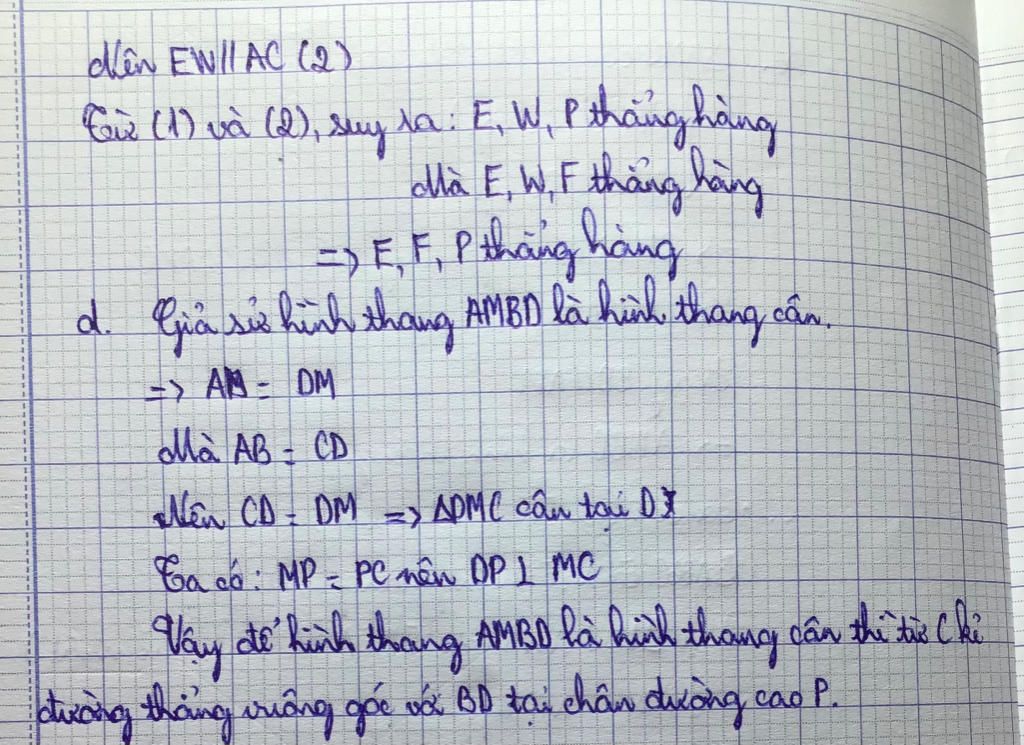 Nên EW//AC (2)
Từ (1) và (2), suy ra: E, W, P thẳng hàng
Mà E, W, F thẳng hàng
=> E, F, P thẳng hàng
d. Giả sử hình thang AMBD là hình thang cân.
=> AB = DM
Mà AB = CD
Nên CD = DM => ΔDMC cân tại D
Ta có: MP = PC nên DP ⊥ MC
Vậy để hình thang AMBD là hình thang cân thì từ C kẻ
đường thẳng vuông góc với BD tại chân đường cao P.